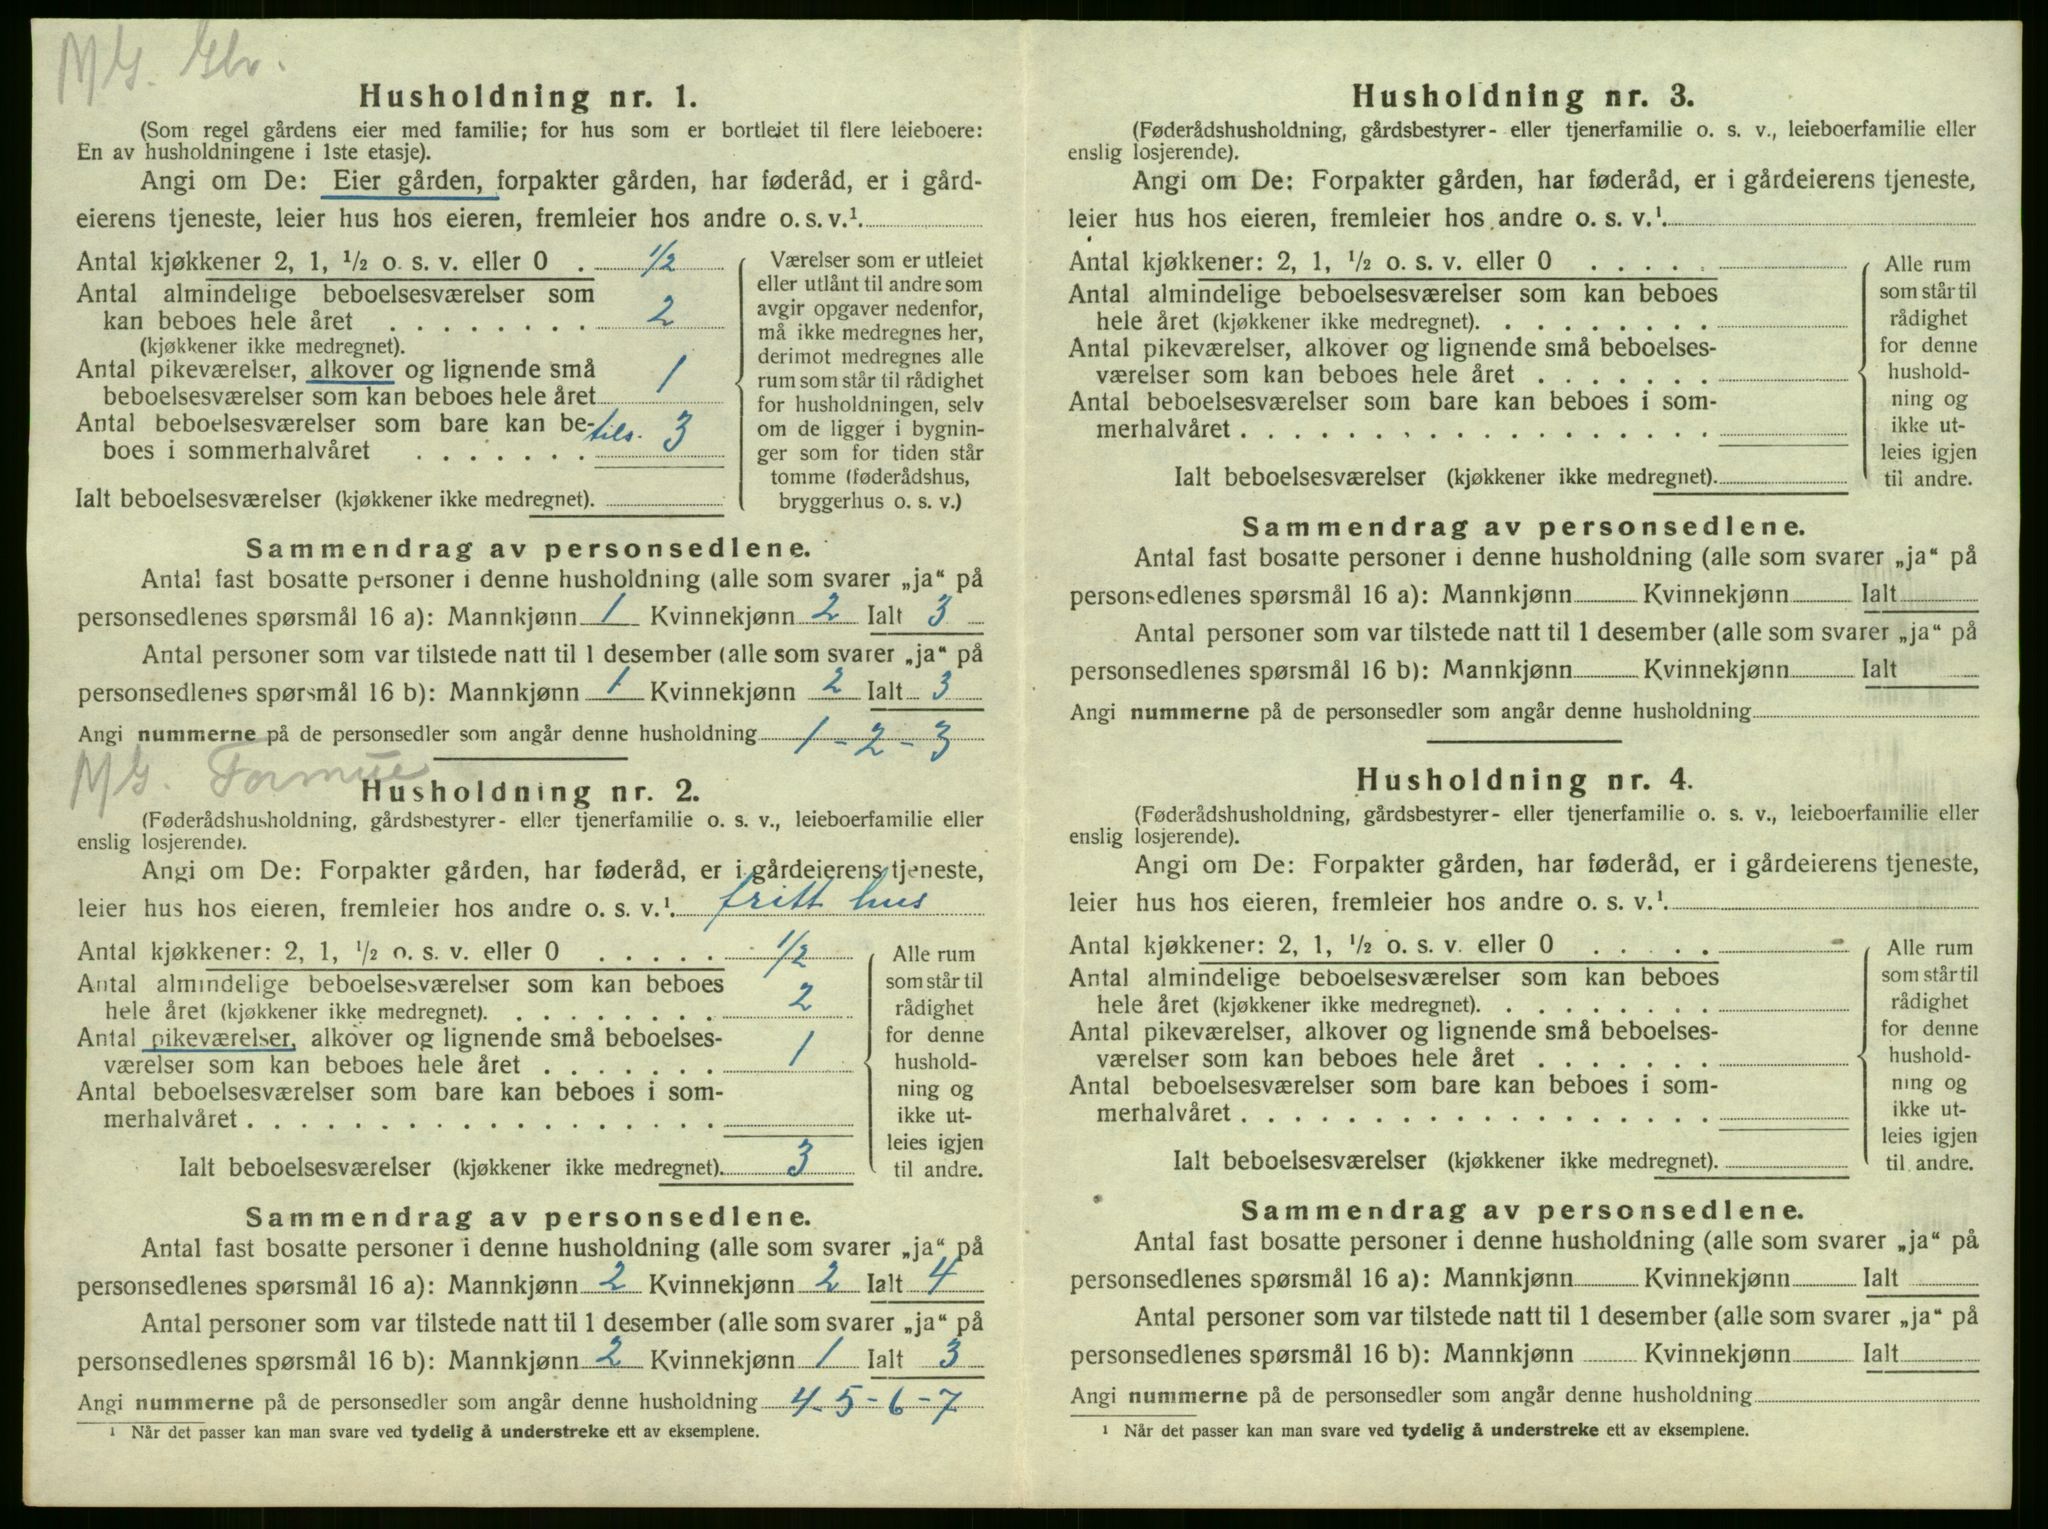 M G. Glv.
Husholdning nr. 1.
(Som regel gårdens eier med familie; for hus som er bortleiet til flere leieboere:
En av husholdningene i 1ste etasje).
Angi om De: Eier gården, forpakter gården, har føderåd, er i gård-
eierens tjeneste, leier hus hos eieren, fremleier hos andre o. s. v.¹.
Antal kjøkkener 2, 1, ½ o. s. v. eller 0 . ½
Antal almindelige beboelsesværelser som
kan beboes hele året . . . . . . . . 2
(kjøkkener ikke medregnet).
Antal pikeværelser, alkover og lignende små
beboelsesværelser som kan beboes hele året 1
Antal beboelsesværelser som bare kan be-
boes i sommerhalvåret . . . . . . . tils. 3
Ialt beboelsesværelser (kjøkkener ikke medregnet).
Værelser som er utleiet
eller utlånt til andre som
avgir opgaver nedenfor,
må ikke medregnes her,
derimot medregnes alle
rum som står til rådighet
for husholdningen, selv
om de ligger i bygnin-
ger som for tiden står
tomme (føderådshus,
bryggerhus o. s. v.)
Sammendrag av personsedlene.
Antal fast bosatte personer i denne husholdning (alle som svarer „ja“ på
personsedlenes spørsmål 16 a): Mannkjønn 1 Kvinnekjønn 2 Ialt 3
Antal personer som var tilstede natt til 1 desember (alle som svarer „ja“ på
personsedlenes spørsmål 16 b): Mannkjønn 1 Kvinnekjønn 2 Ialt 3
Angi nummerne på de personsedler som angår denne husholdning 1 - 2 - 3
M G. Formue
Husholdning nr. 2.
(Føderådshusholdning, gårdsbestyrer- eller tjenerfamilie o. s. v., leieboerfamilie eller
enslig losjerende).
Angi om De: Forpakter gården, har føderåd, er i gårdeierens tjeneste,
leier hus hos eieren, fremleier hos andre o. s. v.¹. fritt hus
Antal kjøkkener: 2, 1, ½ o. s. v. eller 0 . . . . . ½
Antal almindelige beboelsesværelser som kan beboes
hele året (kjøkkener ikke medregnet). . . . . . . . . 2
Antal pikeværelser, alkover og lignende små beboelses-
værelser som kan beboes hele året . . . . . . . 1
Antal beboelsesværelser som bare kan beboes i som-
merhalvåret . . . . . . . . . . . . . . . . . .
Ialt beboelsesværelser (kjøkkener ikke medregnet). 3
Alle rum
som står til
rådighet
for denne
hushold-
ning og
ikke ut-
leies igjen
til andre.
Sammendrag av personsedlene.
Antal fast bosatte personer i denne husholdning (alle som svarer „ja“ på
personsedlenes spørsmål 16 a): Mannkjønn 2 Kvinnekjønn 2 Ialt 4
Antal personer som var tilstede natt til 1 desember (alle som svarer „ja“ på
personsedlenes spørsmål 16 b): Mannkjønn 2 Kvinnekjønn 1 Ialt 3
Angi nummerne på de personsedler som angår denne husholdning 4 - 5 - 6 - 7
¹ Når det passer kan man svare ved tydelig å understreke ett av eksemplene.
Husholdning nr. 3.
(Føderådshusholdning, gårdsbestyrer- eller tjenerfamilie o. s. v., leieboerfamilie eller
enslig losjerende).
Angi om De: Forpakter gården, har føderåd, er i gårdeierens tjeneste,
leier hus hos eieren, fremleier hos andre o. s. v.¹.
Antal kjøkkener: 2, 1, ½ o. s. v. eller 0 . . . . .
Antal almindelige beboelsesværelser som kan beboes
hele året (kjøkkener ikke medregnet). . . . . . . . .
Antal pikeværelser, alkover og lignende små beboelses-
værelser som kan beboes hele året . . . . . . .
Antal beboelsesværelser som bare kan beboes i som-
merhalvåret . . . . . . . . . . . . . . . . . .
Ialt beboelsesværelser (kjøkkener ikke medregnet).
Alle rum
som står til
rådighet
for denne
hushold-
ning og
ikke ut-
leies igjen
til andre.
Sammendrag av personsedlene.
Antal fast bosatte personer i denne husholdning (alle som svarer „ja“ på
personsedlenes spørsmål 16 a): Mannkjønn Kvinnekjønn Ialt
Antal personer som var tilstede natt til 1 desember (alle som svarer „ja“ på
personsedlenes spørsmål 16 b): Mannkjønn Kvinnekjønn Ialt
Angi nummerne på de personsedler som angår denne husholdning
Husholdning nr. 4.
(Føderådshusholdning, gårdsbestyrer- eller tjenerfamilie o. s. v., leieboerfamilie eller
enslig losjerende).
Angi om De: Forpakter gården, har føderåd, er i gårdeierens tjeneste,
leier hus hos eieren, fremleier hos andre o. s. v.¹.
Antal kjøkkener: 2, 1, ½ o. s. v. eller 0 . . . . .
Antal almindelige beboelsesværelser som kan beboes
hele året (kjøkkener ikke medregnet). . . . . . . . .
Antal pikeværelser, alkover og lignende små beboelses-
værelser som kan beboes hele året . . . . . . .
Antal beboelsesværelser som bare kan beboes i som-
merhalvåret . . . . . . . . . . . . . . . . . .
Ialt beboelsesværelser (kjøkkener ikke medregnet).
Alle rum
som står til
rådighet
for denne
hushold-
ning og
ikke ut-
leies igjen
til andre.
Sammendrag av personsedlene.
Antal fast bosatte personer i denne husholdning (alle som svarer „ja“ på
personsedlenes spørsmål 16 a): Mannkjønn Kvinnekjønn Ialt
Antal personer som var tilstede natt til 1 desember (alle som svarer „ja“ på
personsedlenes spørsmål 16 b): Mannkjønn Kvinnekjønn Ialt
Angi nummerne på de personsedler som angår denne husholdning
¹ Når det passer kan man svare ved tydelig å understreke ett av eksemplene.